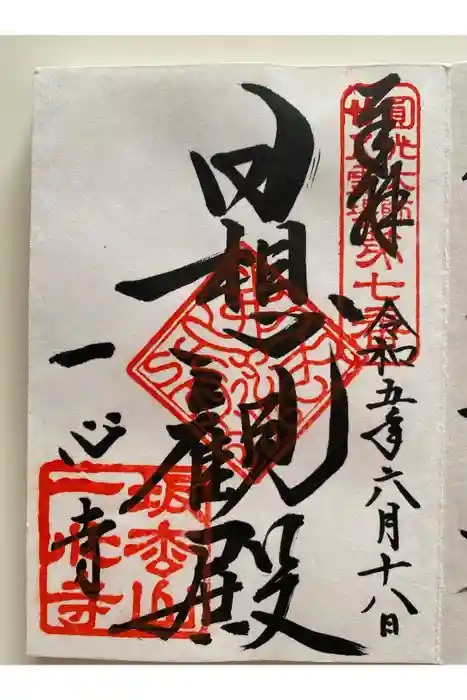 奉拝
令和五年六月十八日
日想観殿
一心寺
圓光大師
霊場第七番
坂松山
一心寺